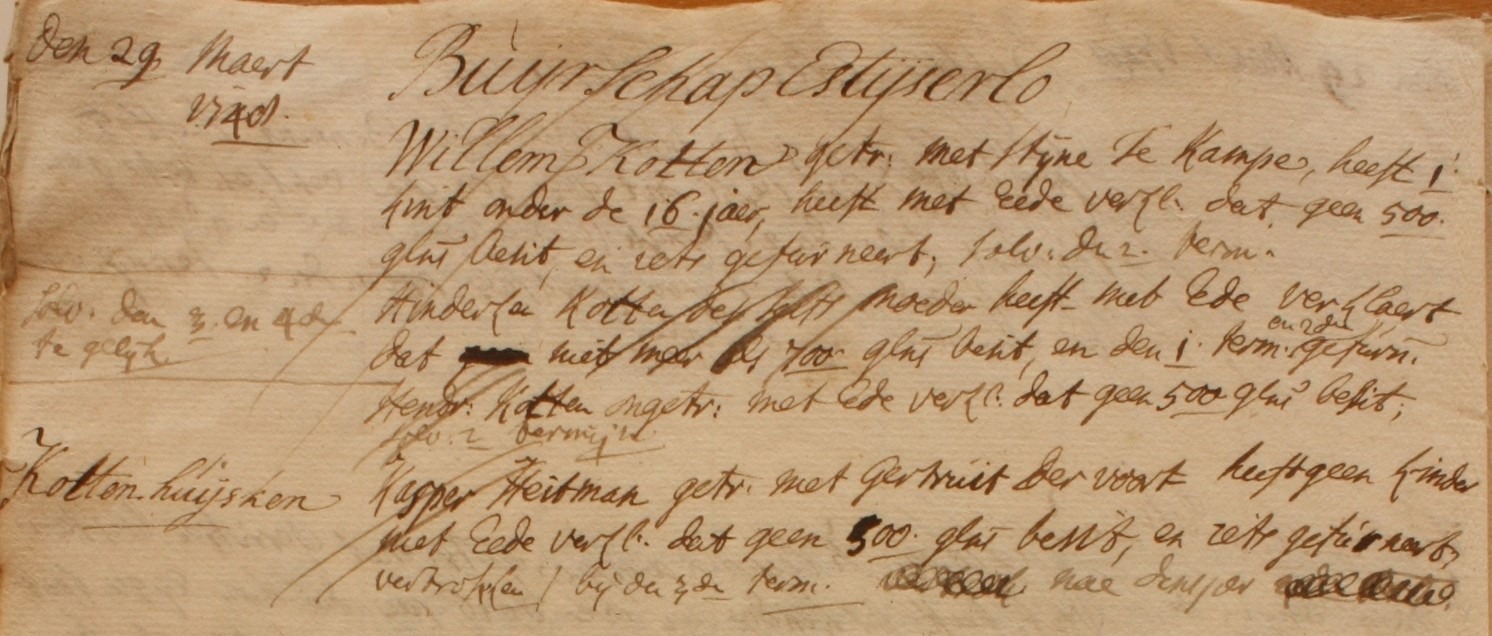 Den 29 Maert
1748.
Buijrschap Estijserlo
Willem Kotten getr. met Stijne te Kampe, heeft 1
kint onder de 16. jaer, heeft met Eede verkl. dat geen 500.
glns besit, en iets gefurneert, solv. den 2. term.
Hinderken Kotten desselfs moeder heeft met Ede verklaert
dat niet meer als 700 glns besit, en den 1. term. en 2den gefurn.
solv. den 3. en 4de
te gelijk
Hendr: Kotten ongetr: met Ede verkl. dat geen 500 glns besit;
solv. 2 termijn
Kotten huijsken
Kasper Heitman getr. met Gertruit Dervoort heeft geen kinder
met Eede verkl. dat geen 500. glns besit, en iets gefurneert,
vertrokken / bij den 3de term. nae